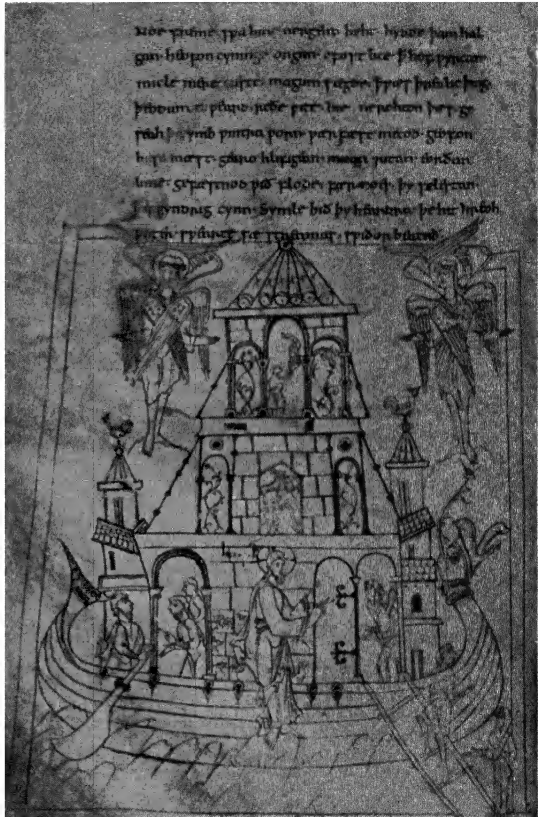 Noe fremede swa hine nergend heht hyrde þam hal
gan heofon cyninge ongan ofostlice ꝥ hof wyrcan
micle mere cieste magum sægde ꝥ wæs þrealic þing
þeodum toweard reðe wite hie ne rohton þæs ge
seah þa ymb wintra worn wærfæst metod geofon
husa mæst gearo hlifigean innan utan eorðan
lime gefæstnod wið flode fær noes þy selestan
syndrig cynn Symle bið þy heardra þe hit hreoh
wæter swearte sæ streamas swiðor beatað